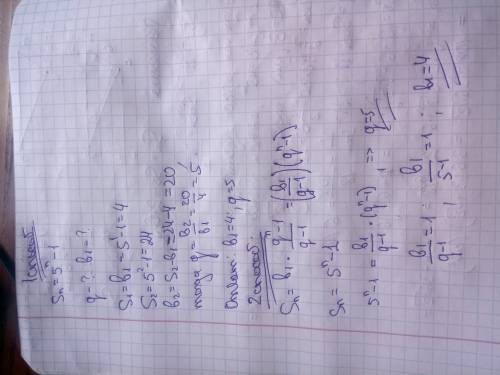 1 способ
Sₙ = 5ⁿ - 1
q - ? b₁ - ?
S₁ = b₁ = 5¹ - 1 = 4
S₂ = 5² - 1 = 24
b₂ = S₂ - b₁ = 24 - 4 = 20
тогда q = b₂/b₁ = 20/4 = 5.
Ответ: b₁ = 4; q = 5
2 способ.
Sₙ = b₁ · (qⁿ - 1)/(q - 1) = (b₁/(q - 1))(qⁿ - 1)
Sₙ = 5ⁿ - 1
5ⁿ - 1 = b₁/(q - 1) · (qⁿ - 1) , => q = 5
b₁/(q - 1) = 1 ; b₁/(5 - 1) = 1 ; b₁ = 4